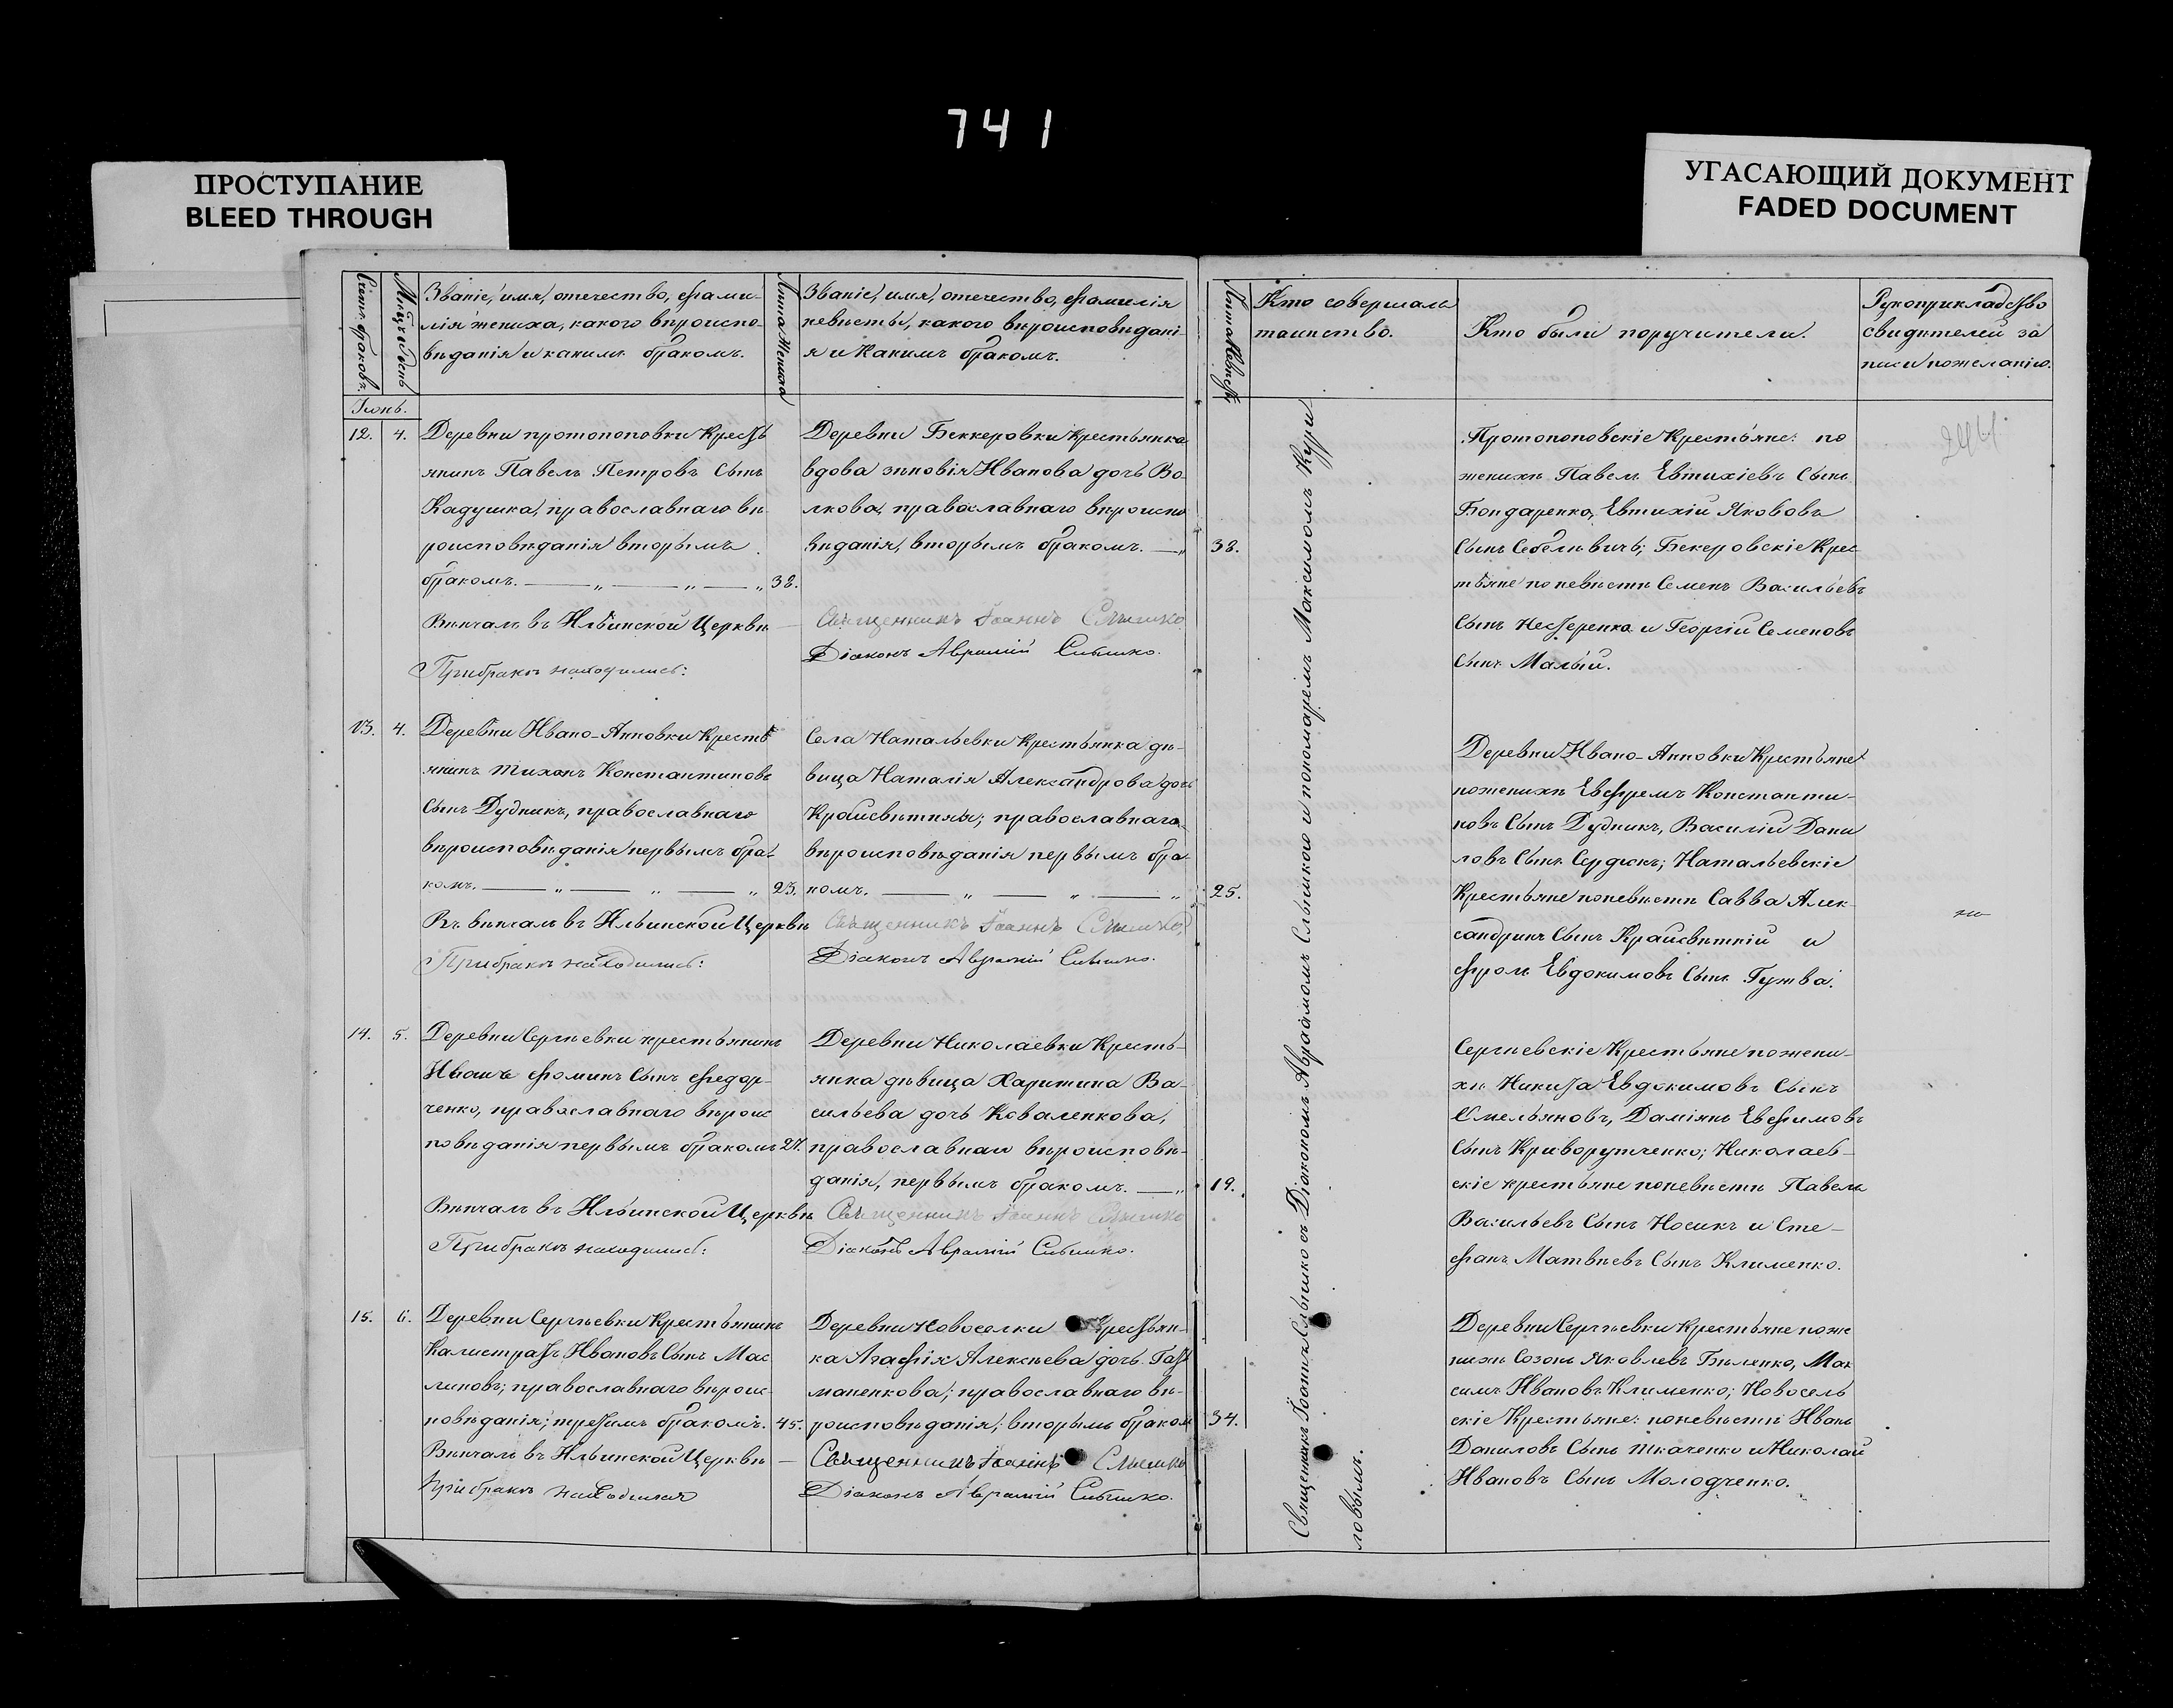 741
ПРОСТУПАНИЕ
BLEED THROUGH
УГАСАЮЩИЙ ДОКУМЕНТ
FADED DOCUMENT
Счетъ браковъ.
Мѣсяцъ и день
Званіе, имя, отечество, фами-
лія жениха, какого вѣроиспо-
вѣданія и какимъ бракомъ.
Лѣта Жениха
Званіе, имя, отечество, фамилія
невѣсты, какого вѣроисповѣдані-
я и какимъ бракомъ.
Лѣта Невѣсты
Кто совершалъ
таинство.
Кто были поручители.
Рукоприкладство
свидѣтелей за
писи по желанію.
Іюнь.
12. 4.
Деревни Протопоповки Кресть
янинъ Павелъ Петровъ Сынъ
Кадушка, православнаго вѣ
роисповѣданія вторымъ
бракомъ. 38.
Вѣнчалъ въ Ильинской Церкви
При бракѣ находились:
Деревни Беккеровки крестьянка
вдова Зѣновія Иванова дочь Во-
лкова, православнаго вѣроиспо
вѣданія, вторымъ бракомъ. 38.
Священникъ Іоаннъ Слышко
Діаконъ Аврамій Слышко.
Протопоповскіе Крестьяне: по
женихѣ Павелъ Евтихіевъ Сынъ
Бондаренко, Евтихій Якововъ
Сынъ ; Бекеровскіе Крес
тьяне по невѣстѣ Семенъ Васильевъ
Сынъ Нестеренко и Георгій Семеновъ
Сынъ Малый.
13. 4.
Деревни Ивано-Анновки Кресть
янинъ Тихонъ Константиновъ
Сынъ Дудникъ, православнаго
вѣроисповѣданія первымъ бра-
комъ. 23.
Въ вѣнчалъ въ Ильинской Церкви
При бракѣ находились:
Села Натальевки Крестьянка дѣ-
вица Наталія Александрова дочь
Крайсвѣтняя; православнаго
вѣроисповѣданія первымъ бра-
комъ. 25.
Священникъ Іоаннъ Слышко
Діаконъ Аврамій Слышко.
Деревни Ивано-Анновки Крестьяне
по женихѣ Евфремъ Константи-
новъ Сынъ Дудникъ, Василій Дани
ловъ Сынъ Сердюкъ; Натальевскіе
Крестьяне по невѣстѣ Савва Алек-
сандринъ Сынъ Крайсвѣтній и
Фролъ Евдокимовъ Сынъ Гужва.
14. 5.
Деревни Сергѣевки крестьянинъ
Иванъ Фоминъ Сынъ Федор-
ченко, православнаго вѣроис
повѣданія первымъ бракомъ
Вѣнчалъ въ Ильинской Церкви
При бракѣ находились:
Деревни Николаевки Кресть-
янка дѣвица Харитина Ва-
сильева дочь Коваленкова,
православнаго вѣроисповѣ-
данія, первымъ бракомъ. 19.
Священникъ Іоаннъ Слышко
Діаконъ Аврамій Слышко.
Сергѣевскіе Крестьяне по жени-
хѣ Никита Евдокимовъ Сынъ
Емельяновъ, Даміянъ Евфимовъ
Сынъ Криворутченко; Николаев-
скіе крестьяне по невѣстѣ Павелъ
Васильевъ Сынъ Носикъ и Сте-
фанъ Матвѣевъ Сынъ Клименко.
15. 6.
Деревни Сергѣевки Крестьянинъ
Калистратъ Ивановъ Сынъ Мас
линовъ; православнаго вѣроис-
повѣданія; третимъ бракомъ. 45.
Вѣнчалъ въ Ильинской Церкви
При бракѣ находился
Деревни Новоселки Крестьян-
ка Агафія Алексѣева дочь
православнаго вѣ-
роисповѣданія; вторымъ браком 34.
Священникъ Іоаннъ Слышко
Діаконъ Аврамій Слышко.
Деревни Сергѣевки Крестьяне по же
нихѣ Созонъ Яковлевъ Бѣленко, Мак
симъ Ивановъ Клименко; Новосель
скіе Крестьяне: по невѣстѣ Иванъ
Даниловъ Сынъ Ткаченко и Николай
Ивановъ Сынъ Молодченко.
Священникъ Іоаннъ Слышко съ Діакономъ Аврамомъ Слышкою и пономаремъ Максимомъ Кури
ловымъ.